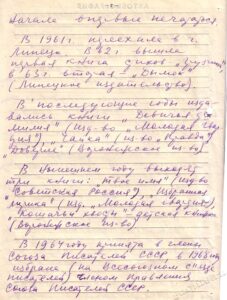 Начала впервые печататься
В 1961 г. приехала в г.
Липецк. В 62 г. вышла
первая книга стихов
в 63 г. вторая - „Дымок"
(Липецкое издательство).
В последующие годы изда-
вались книги „Девичья фа-
милия" (изд-во „Молодая гвар-
дия"), „Чайка" (из-во „Правда"),
(Воронежское из-во)
В нынешнем году выходят
три книги: „Твоё имя" (изд-во
"Советская Россия"), „Избранная
лирика" (изд. „Молодая гвардия"),
„Кошачьи хвосты" - детская книжка
(Воронежское из-во)
В 1964 году принята в члены
Союза Писателей СССР. В
избрана (на Всесоюзном съезде
писателей) членом Правления
Союза Писателей СССР.